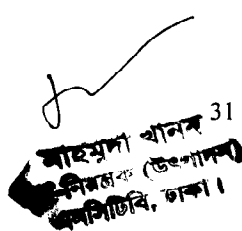 31
মাহমুদা খানম
নিয়ন্ত্রক (উৎপাদন)
এনসিটিবি, ঢাকা।